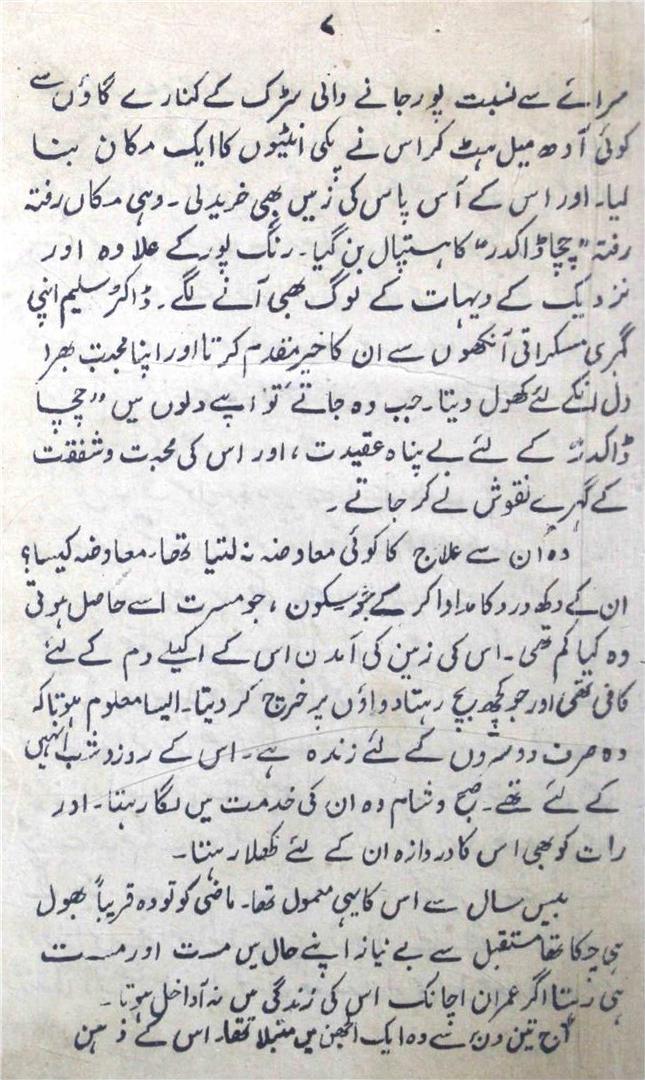 ۷
سرائے سے نسبت پور جانے والی سڑک کے کنارے گاؤں سے
کوئی آدھ میل ہٹ کر اس نے پکی انیٹوں کا ایک مکان بنا
لیا۔ اور اس کے آس پاس کی زمیں بھی خرید لی۔ وہی مکاں رفتہ
رفتہ ”چچا ڈاکدر“ کا ہستپال بن گیا۔ رنگ پور کے علاوہ اور
نزدیک کے دیہات کے لوگ بھی آنے لگے۔ ڈاکٹر سلیم اپنی
گہری مسکراتی آنکھوں سے ان کا خیر مقدم کرتا اور اپنا محبت بھرا
دل انکے لئے کھول دیتا۔ جب وہ جاتے تو اپنے دلوں میں ”چچا
ڈاکدر“ کے لئے بے پناہ عقیدت، اور اس کی محبت و شفقت
کے گہرے نقوش لے کر جاتے۔
وہ ان سے علاج کا کوئی معاوضہ نہ لیتا تھا۔ معاوضہ کیسا؟
ان کے دکھ درد کا مداوا کر کے جو سکون، جو مسرت اسے حاصل ہوتی
وہ کیا کم تھی۔ اس کی زمین کی آمدن اس کے اکیلے دم کے لئے
کافی تھی اور جو کچھ بچ رہتا دواؤں پر خرچ کر دیتا۔ ایسا معلوم ہوتا کہ
وہ صرف دوسروں کے لئے زندہ ہے۔ اس کے روز و شب انہیں
کے لئے تھے۔ صبح و شام وہ ان کی خدمت میں لگا رہتا۔ اور
رات کو بھی اس کا دروازہ ان کے لئے کُھلا رہتا۔
بیس سال سے اس کا یہی معمول تھا۔ ماضی کو تو وہ قریباً بھول
ہی چکا تھا مستقبل سے بے نیاز اپنے حال میں مست اور مست
ہی رہتا اگر عمران اچانک اس کی زندگی میں نہ آ داخل ہوتا۔
آج تین دن سے وہ ایک الجھن میں مبتلا تھا۔ اس کے ذہن